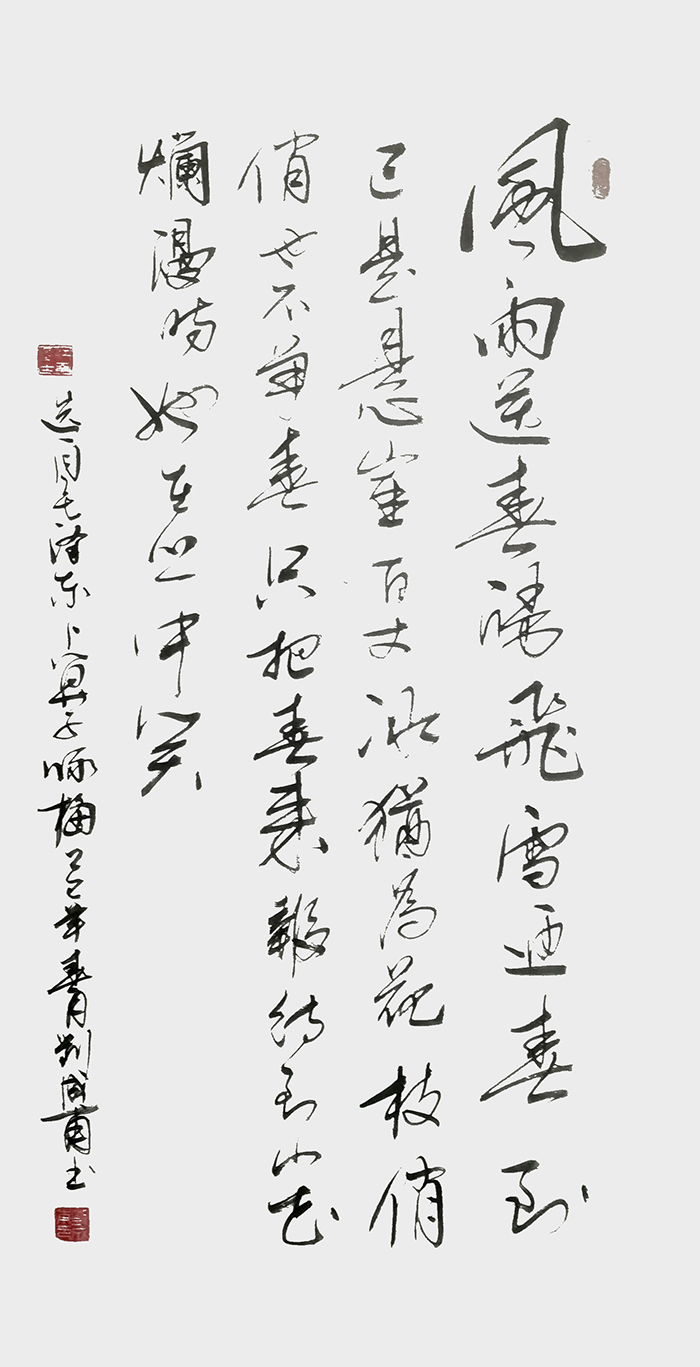 風雨送春歸飛雪迎春到
已是懸崖百丈冰猶為花枝俏
俏也不爭春只把春來報待到山花
爛漫時她在丛中笑
选自毛泽东卜算子咏梅乙巳年春月劉成甫书